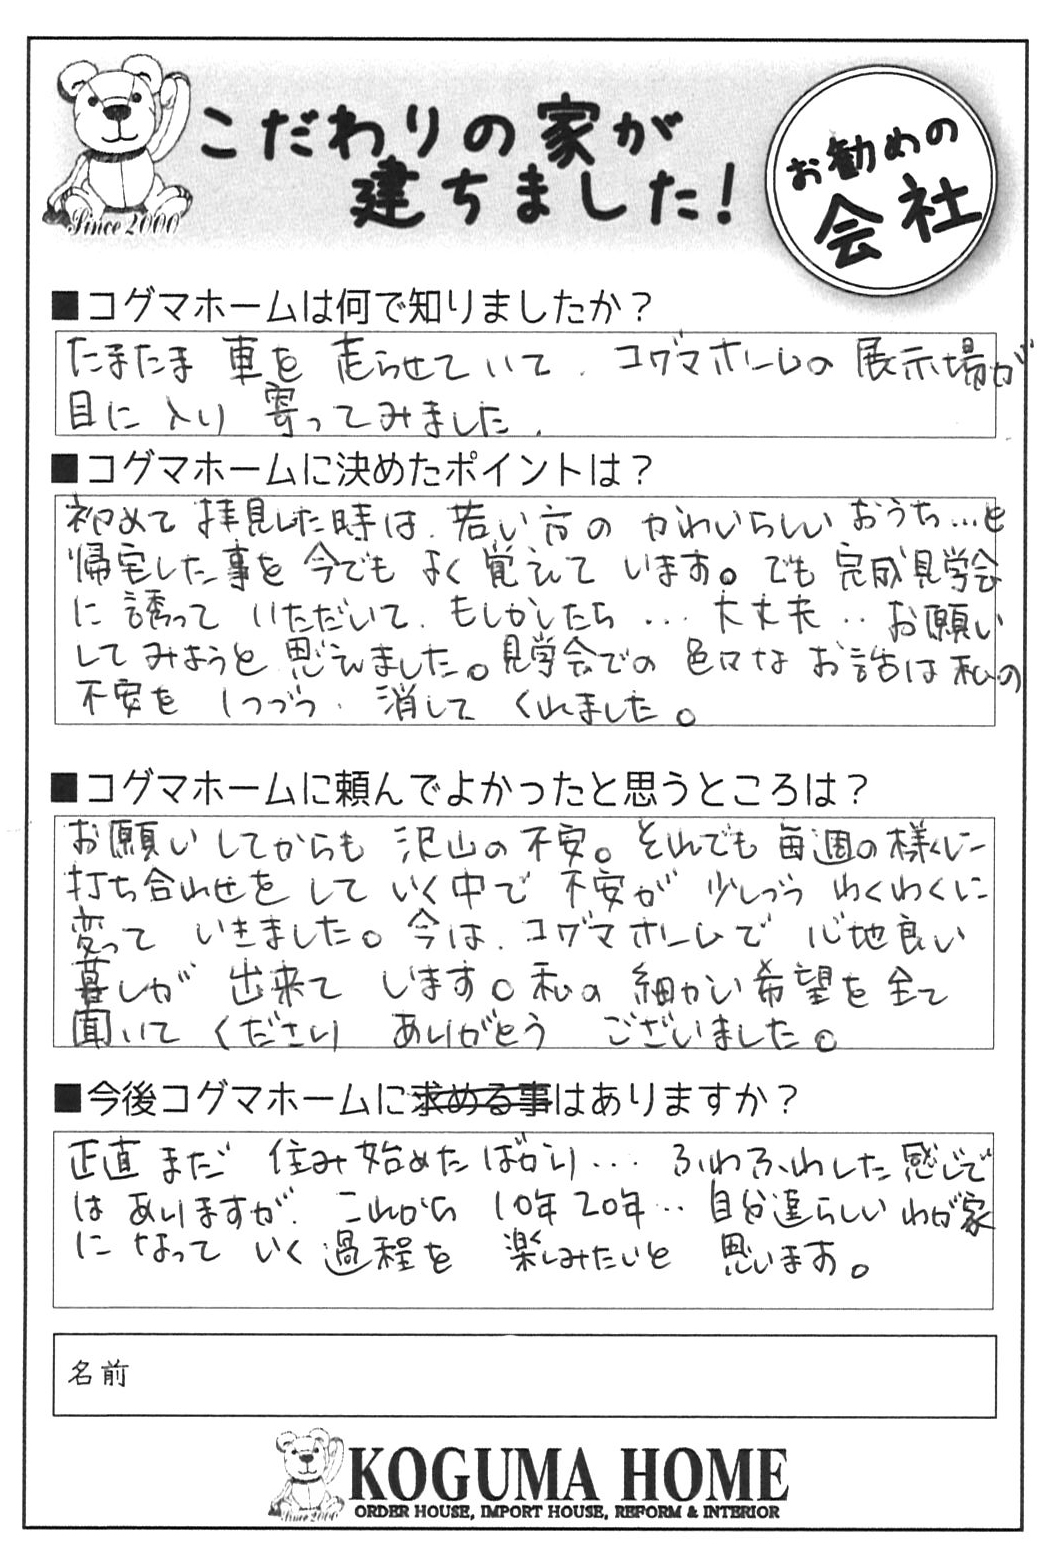 こだわりの家が
建ちました!
お勧めの
会社
Since 2000
■コグマホームは何で知りましたか?
たまたま 車を 走らせていて、コグマホームの 展示場が
目に 入り 寄ってみました、
■コグマホームに決めたポイントは?
初めて 拝見した時は、若い方の かわいらしい おうち…と
帰宅した事を 今でも よく 覚えて います。でも 完成見学会
に 誘って いただいて、もしかしたら … 大丈夫‥お願い
してみようと 思えました。見学会での 色々な お話は 私の
不安を 1つづつ、消して くれました。
■コグマホームに頼んでよかったと思うところは?
お願い してからも 沢山の 不安。それでも 毎週の様に
打ち合わせを して いく中で 不安が 少しづつ わくわくに
変って いきました。今は、コグマホームで 心地良い
暮しが 出来て います。私の 細かい 希望を 全て
聞いて くださり ありがとう ございました。
■今後コグマホームに求める事はありますか?
正直 まだ 住み始めた ばかり… ふわふわした 感じで
は ありますが、これから 10年 20年… 自分達らしい わが家
に なって いく 過程を 楽しみたいと 思います。
名前
KOGUMA HOME
ORDER HOUSE, IMPORT HOUSE, REFORM & INTERIOR
Since 2000